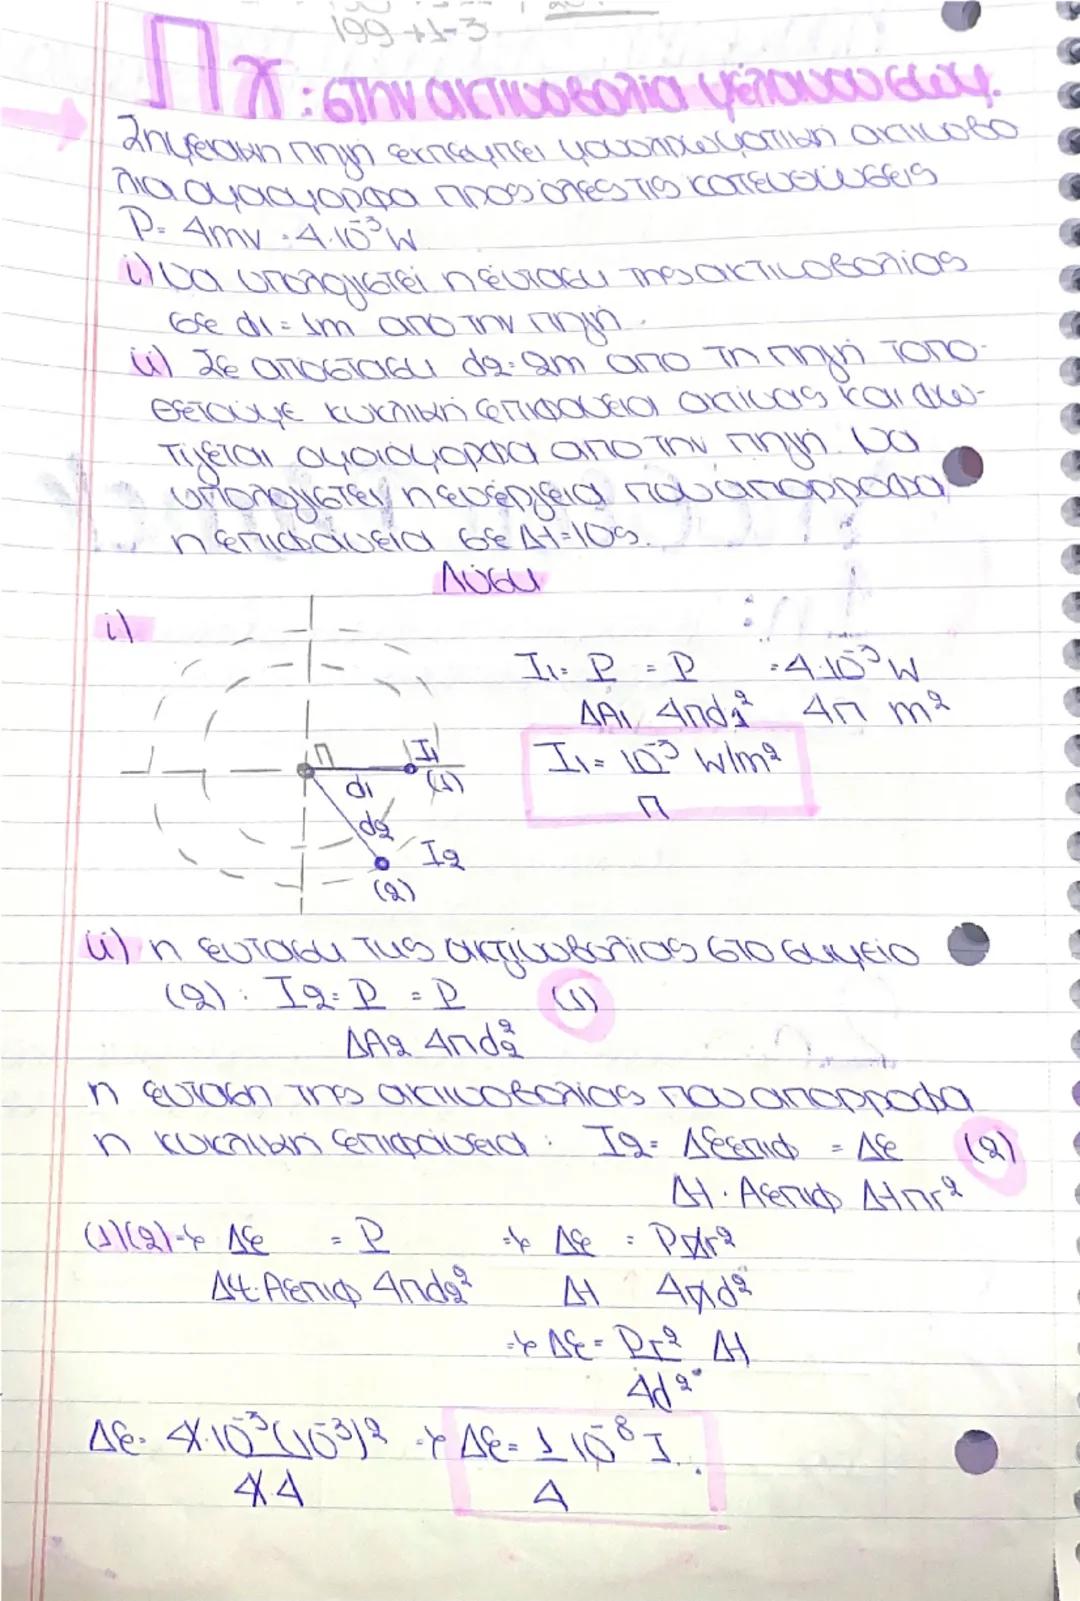 199+1-3
Πχ: στην ακτινοβολία μέλανου σώμ.
Σημειακη πηγη εκπεμπει μονοχρωματικη ακτινοβο
λια ομοιομορφα προς όλες τις κατευθύνσεις
P= 4mν = 4.10⁻³W
i) να υπολογιστεί η ένταση της ακτινοβολίας
σε d1 = 1m απο την πηγή.
ii) Σε απόσταση d2=2m απο τη πηγή τοπο-
θετούμε κυκλική επιφάνεια ακτίνας και φω-
τίζεται ομοιομορφα απο την πηγή. Να
υπολογιστεί η ενέργεια που απορροφα
η επιφάνεια σε Δt=10s.
Λύση
i)
I1= P = P = 4.10⁻³ W
ΔA1 4πd1² 4π m²
I1 = 10⁻³ W/m²
π
Π I1
d1 (1)
d2
I2
(2)
ii) η ένταση της ακτινοβολίας στο σημείο
(2): I2= P = P (1)
ΔA2 4πd2²
η ένταση της ακτινοβολίας που απορροφα
η κυκλική επιφάνεια: I2= ΔEεπιφ = ΔE (2)
Δt . Aεπιφ Δtπr²
(1)(2)→ ΔE = P ⇒ ΔE = Pπr²
Δt.Aεπιφ 4πd2² Δt 4πd²
⇒ ΔE= Pr² Δt
4d²
ΔE= 4.10⁻³(10⁻³)² → ΔE= 1 10⁻⁸ J.
4.4 4